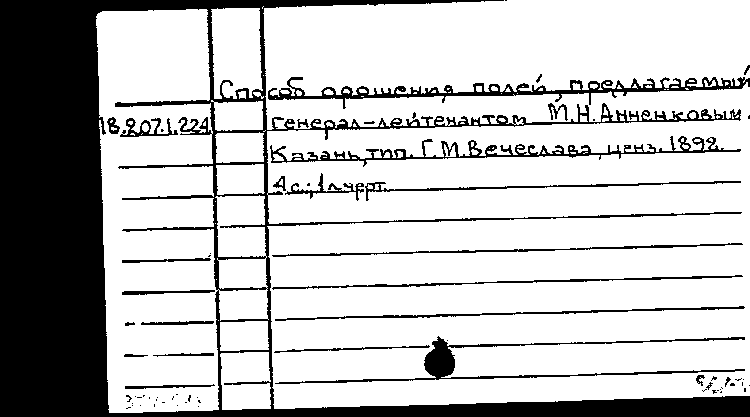 Способ орошения полей, предлагаемый
18.207.1.224 генерал-лейтенантом М.Н.Анненковым.
Казань, тип. Г.М.Вечеслава, ценз. 1892.
4с.; 1л.черт.